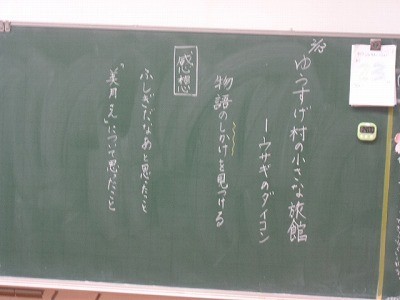 ゆうすげ村の小さな旅館
―ウサギのダイコン
物語のしかけを見つける
感想
ふしぎだなあと思ったこと
"美月さん"について思ったこと